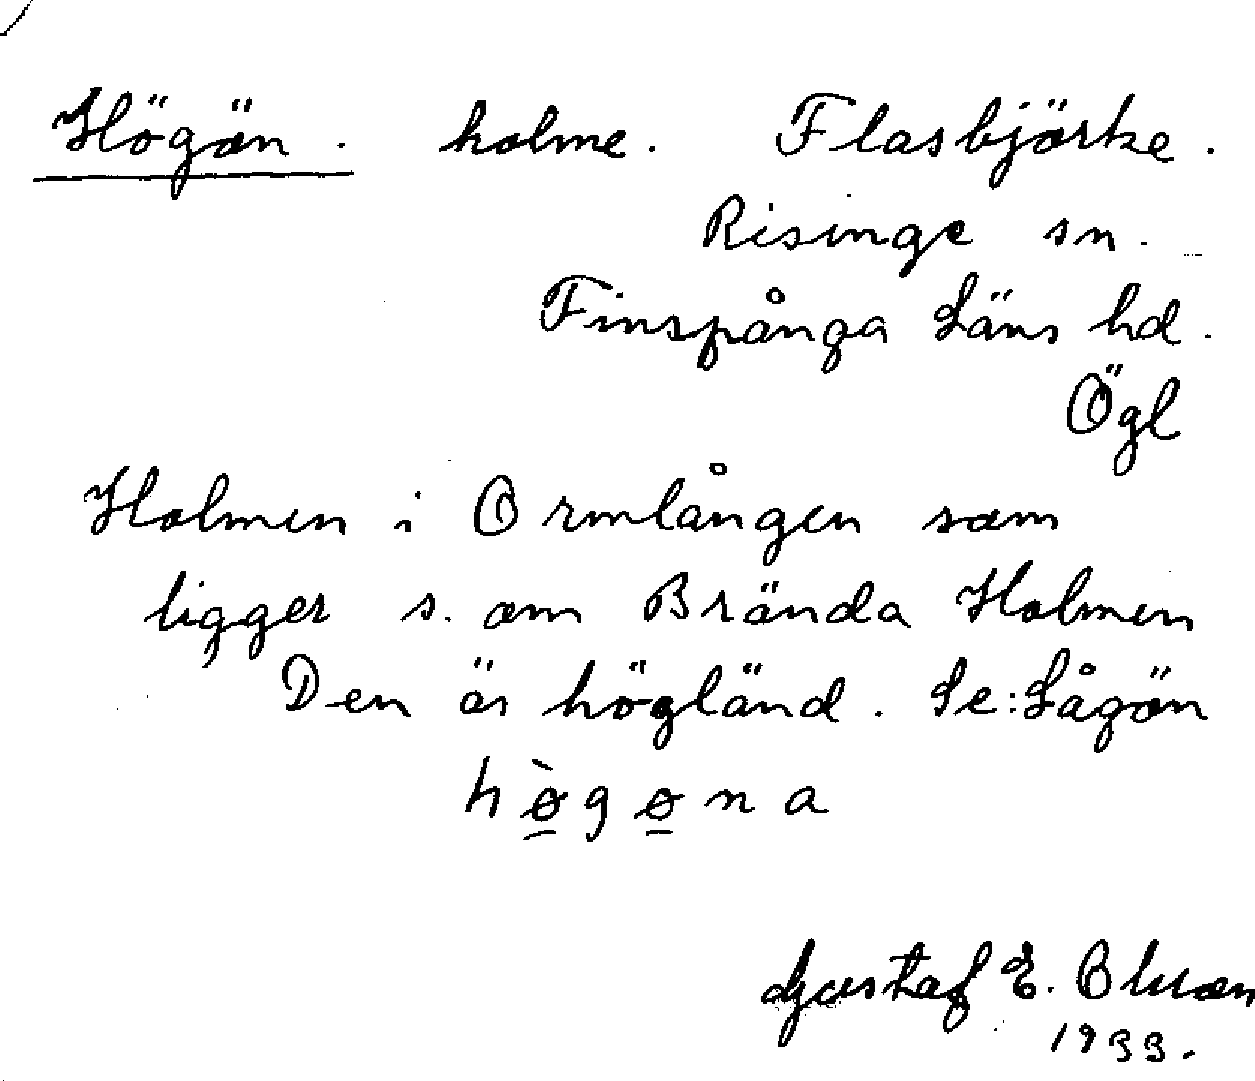 Högön. holme. Flasbjörke.
Risinge sn.
Finspånga Läns hd.
Ögl
Holmen i Ormlången som
ligger s. om Brända Holmen
Den är högländ. Se: Lågön
hø̀gøna
Gustaf E.
1933.